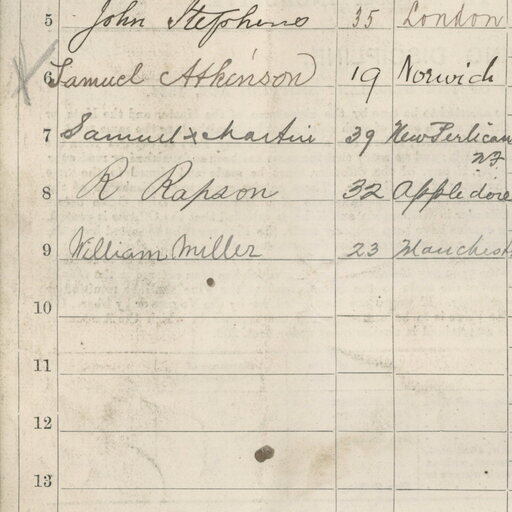 5 John Stephens 35 London
6 Samuel Atkinson 19 Norwich
7 Samuel x Martin 39 New Perlican
NF
8 R Rapson 32 Appledore
9 William Miller 23 Manchest
10
11
12
13